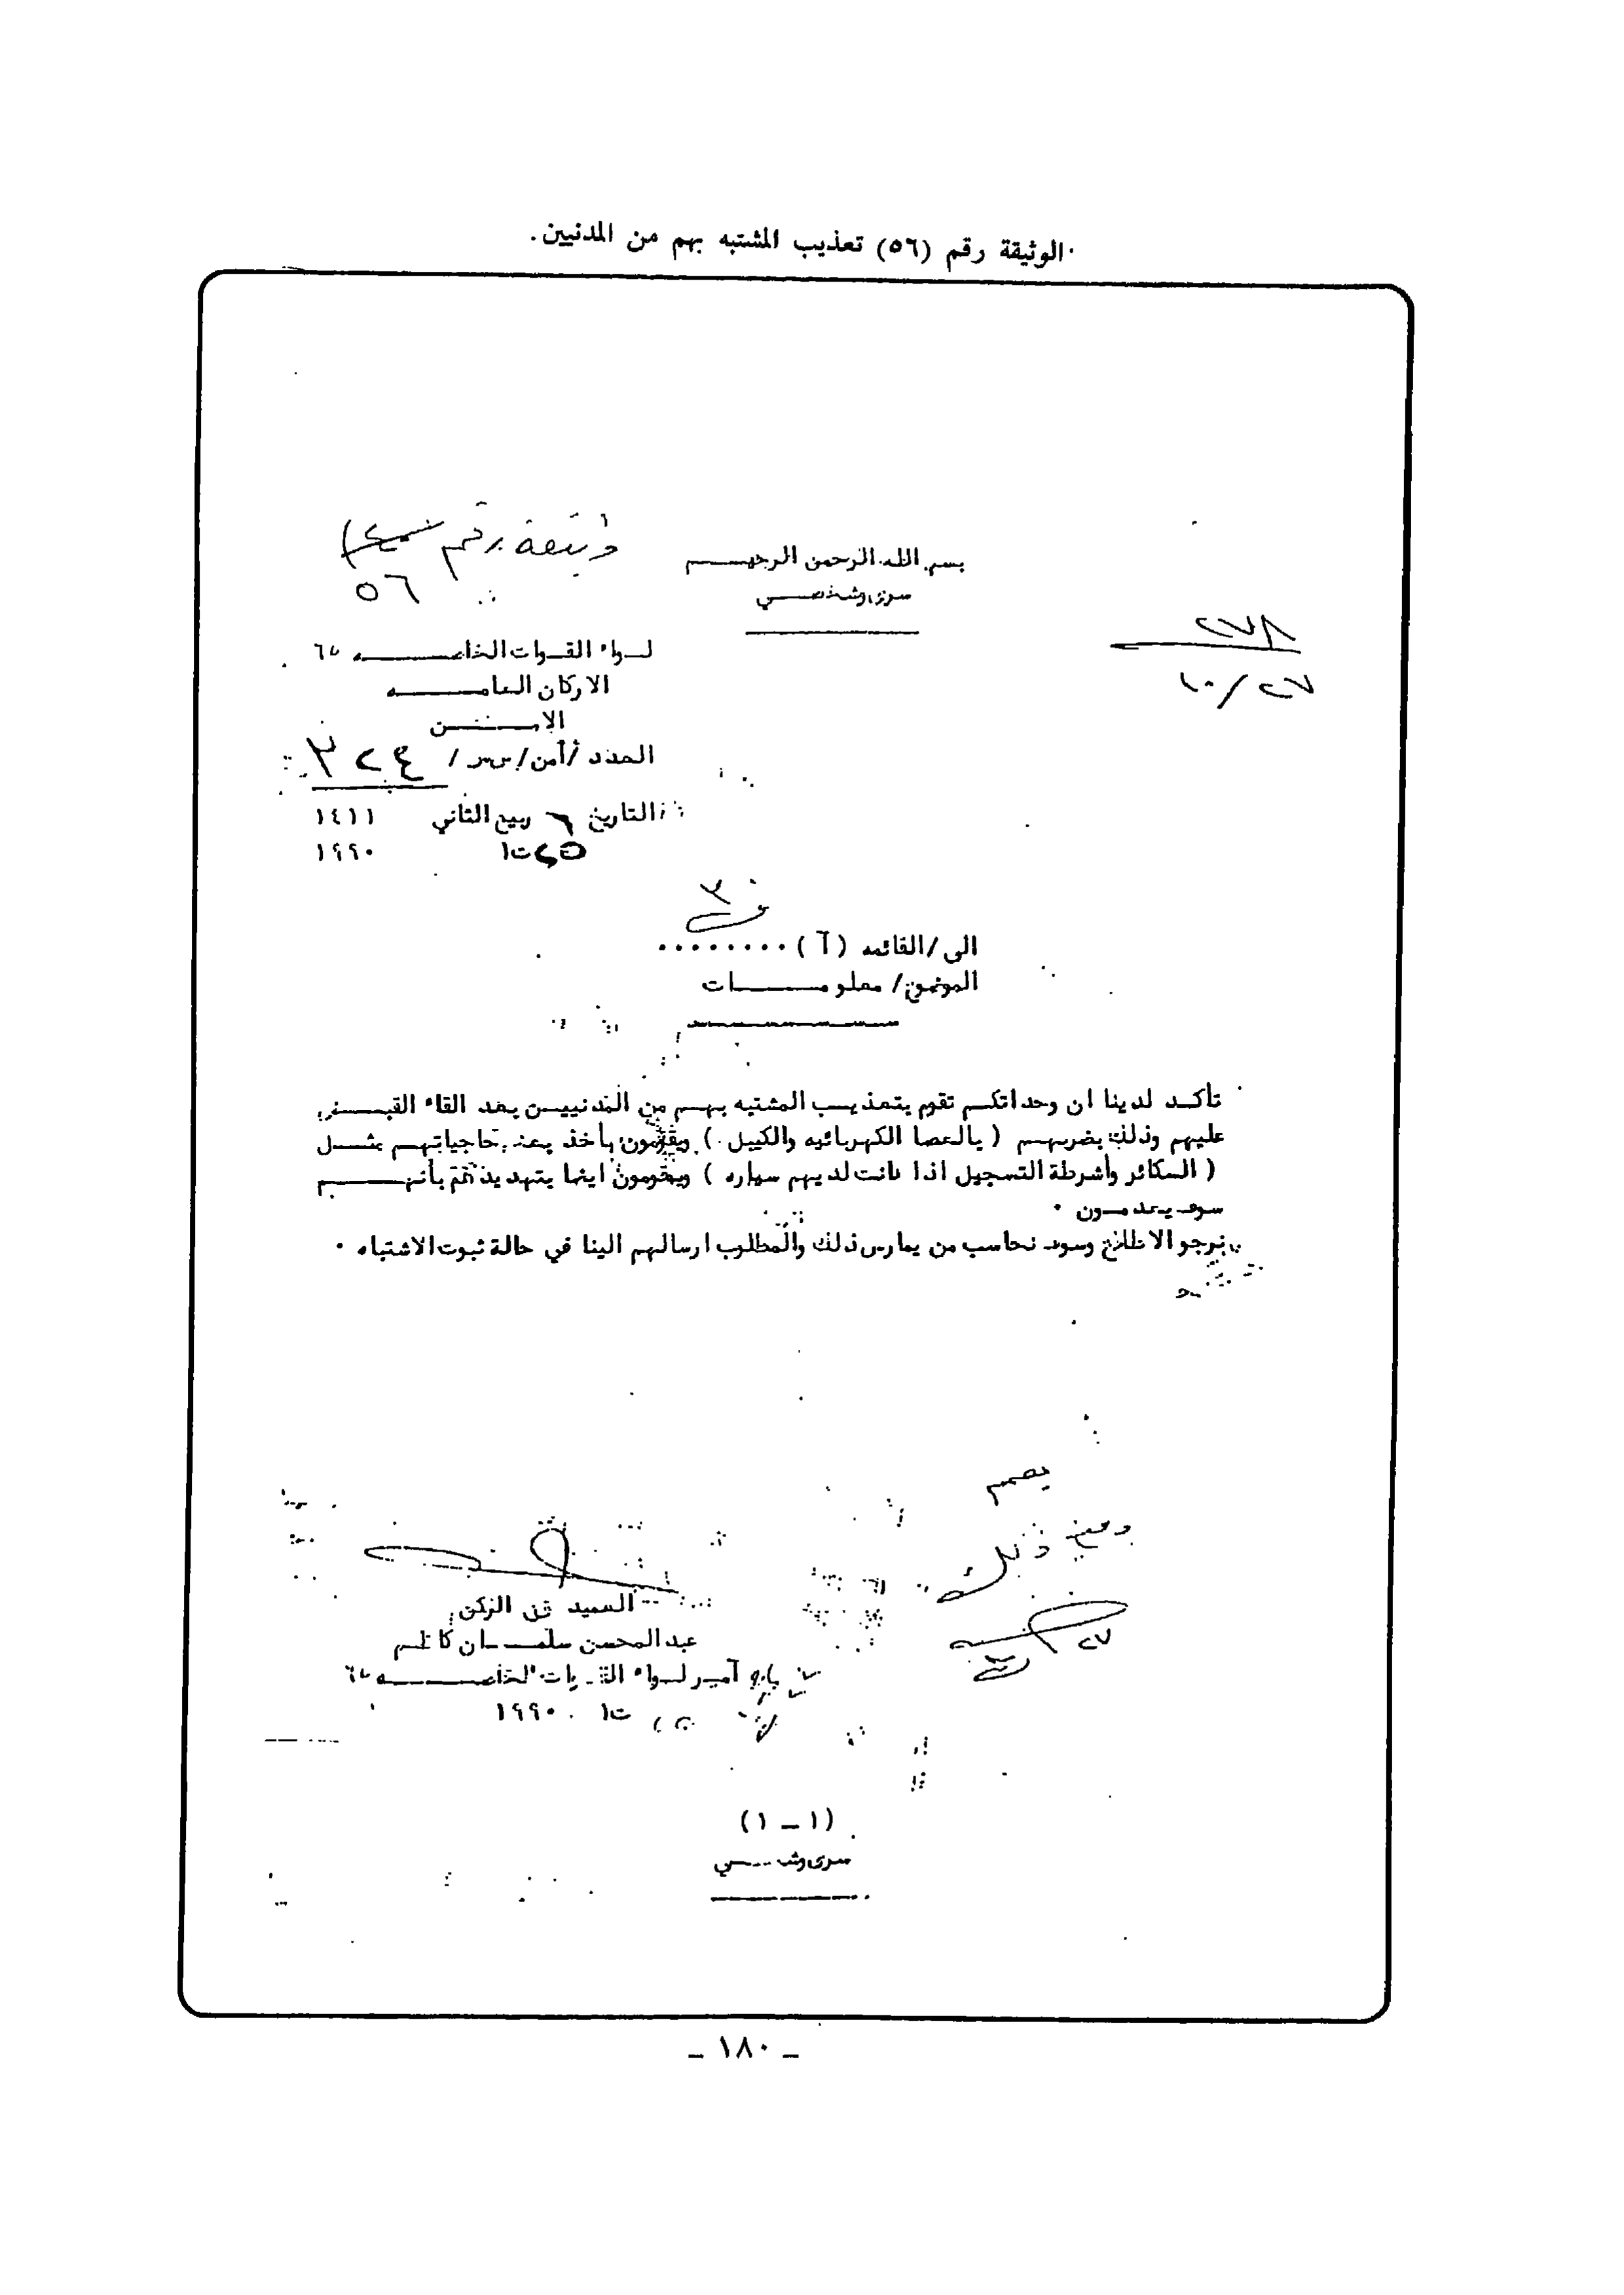 الوثيقة رقم (٥٦) تعذيب المشتبه بهم من المدنيين.
وثيقة رقم
٥٦
بسم الله الرحمن الرحيم
سري وشخصي
٢٧٨
٢٧/١٠
لواء القوات الخاصه ٦٥
الاركان العامه
الامن
العدد /أمن/س ش/ ٣٢٤
التاريخ ٦ ربيع الثاني ١٤١١
٢٥ ت١ ١٩٩٠
الى/القائمه (آ) ........
الموضوع/ معلومات
تأكد لدينا ان وحداتكم تقوم بتعذيب المشتبه بهم من المدنيين بعد القاء القبض
عليهم وذلك بضربهم ( بالعصا الكهربائيه والكيبل ) ويقومون بأخذ بعض حاجياتهم مثل
( السكائر وأشرطة التسجيل اذا كانت لديهم سياره ) ويقومون ايضا بتهديدهم بأنهم
سوف يعدمون .
نرجو الاطلاع وسوف نحاسب من يمارس ذلك والمطلوب ارسالهم الينا في حالة ثبوت الاشتباه .
يعمم
ذلك
٢٧
العميد ق خ الركن
عبد المحسن سلمان كاظم
آمر لواء القوات الخاصه ٦٥
ت١ ١٩٩٠
(١ – ١)
سري وشخصي
– ١٨٠ –